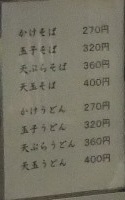 かけそば 270円
玉子そば 320円
天ぷらそば 360円
天玉そば 400円
かけうどん 270円
玉子うどん 320円
天ぷらうどん 360円
天玉うどん 400円